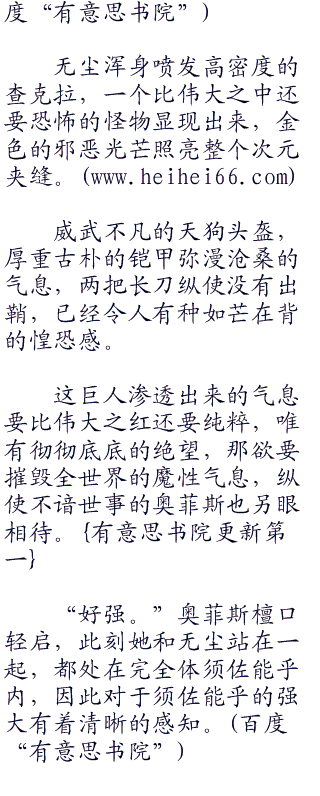 度“有意思书院”)
无尘浑身喷发高密度的
查克拉，一个比伟大之中还
要恐怖的怪物显现出来，金
色的邪恶光芒照亮整个次元
夹缝。(www.heihei66.com)
威武不凡的天狗头盔，
厚重古朴的铠甲弥漫沧桑的
气息，两把长刀纵使没有出
鞘，已经令人有种如芒在背
的惶恐感。
这巨人渗透出来的气息
要比伟大之红还要纯粹，唯
有彻彻底底的绝望，那欲要
摧毁全世界的魔性气息，纵
使不谙世事的奥菲斯也另眼
相待。{有意思书院更新第
一}
“好强。”奥菲斯檀口
轻启，此刻她和无尘站在一
起，都处在完全体须佐能乎
内，因此对于须佐能乎的强
大有着清晰的感知。(百度
“有意思书院”)